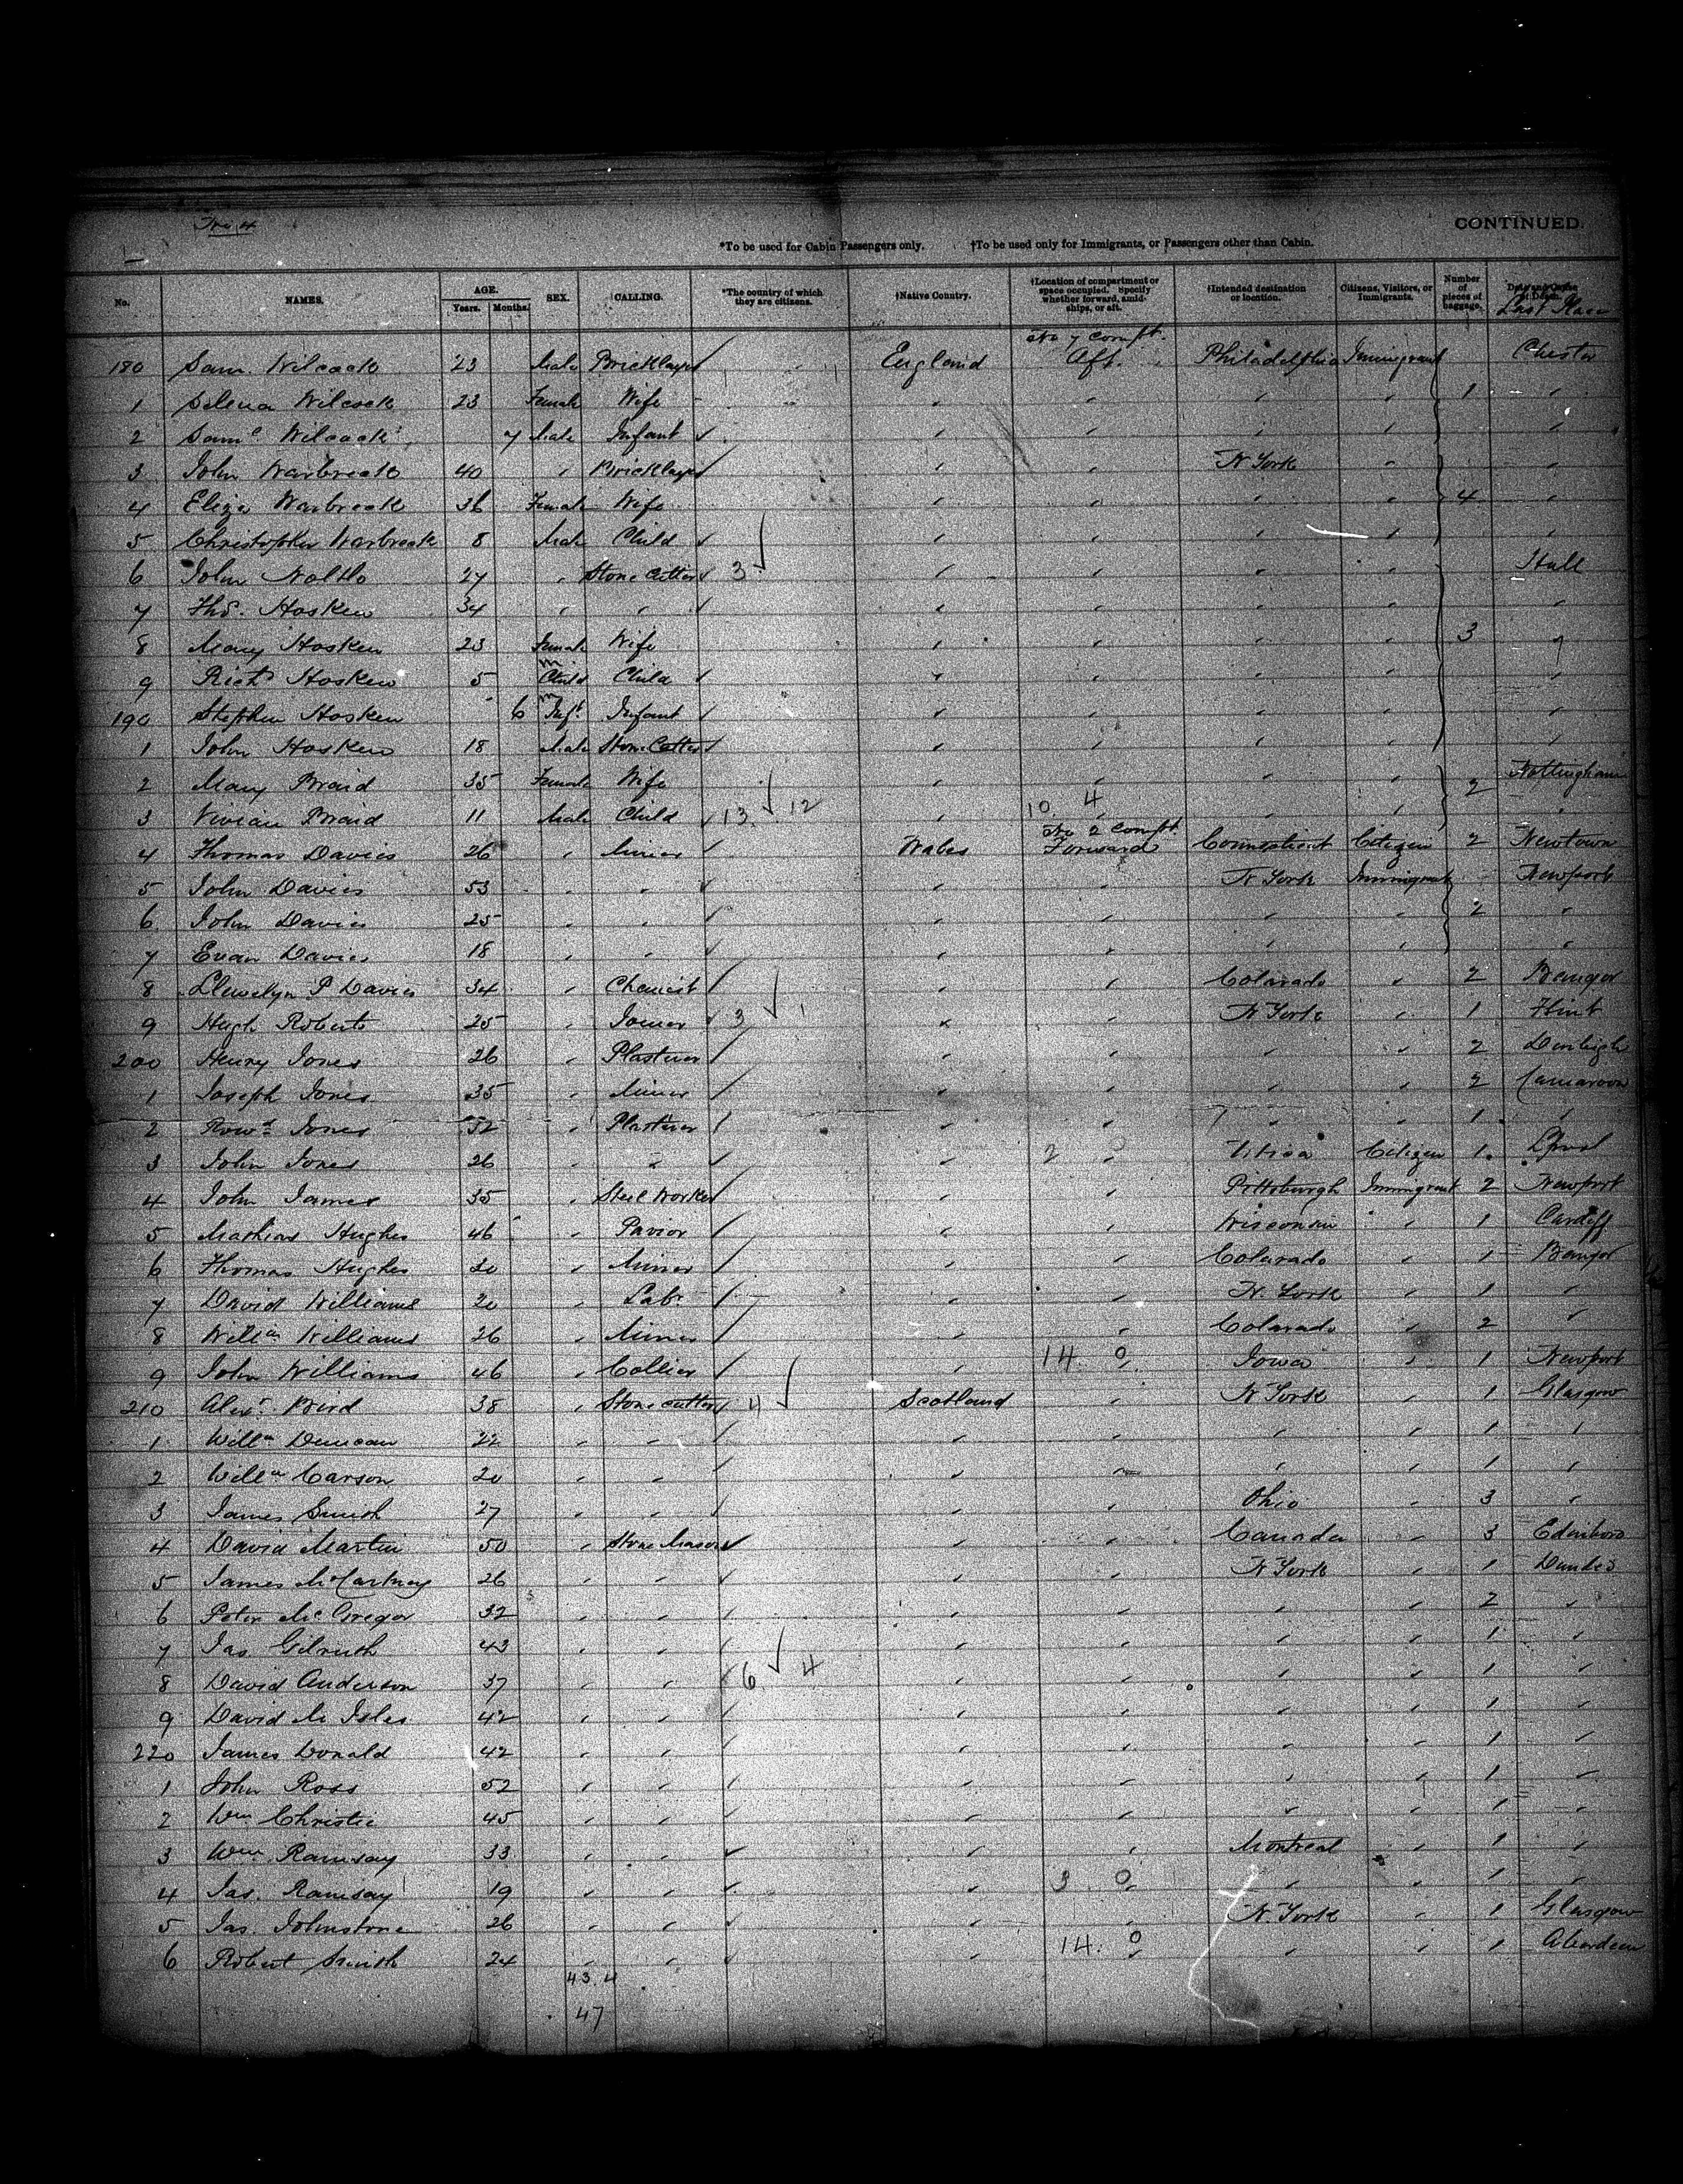 No 4
CONTINUED.
*To be used for Cabin Passengers only. †To be used only for Immigrants, or Passengers other than Cabin.
No. NAMES. AGE. Years. Months. SEX. CALLING. *The country of which they are citizens. †Native Country. †Location of compartment or space occupied. Specify whether forward, amidships, or aft. †Intended destination or location. Citizens, Visitors, or Immigrants. Number of pieces of baggage. Last Place
No 7 compt.
180 Sam. Wilcock 23 Male Bricklayer England Aft. Philadelphia Immigrant Chester
1 Selena Wilcock 23 Female Wife " " " " 1 "
2 Saml Wilcock 7 Male Infant " " " " "
3 John Warbreck 40 " Bricklayer " " N York " "
4 Eliza Warbreck 36 Female Wife " " " " 4 "
5 Christopher Warbreck 8 Male Child " " " " "
6 John 27 " Stone Cutter 3 " " " " Hull
7 Thos. Hosken 34 " " " " " " "
8 Mary Hosken 23 Female Wife " " " " 3 "
9 Richd Hosken 5 m Child Child " " " " "
190 Stephen Hosken 6 m Inft Infant " " " " "
1 John Hosken 18 Male Stone Cutter " " " " "
2 Mary Braid 35 Female Wife " " " " 2 Nottingham
3 Vivian Braid 11 Male Child 13 12 " 10 4 " " "
No 2 compt
4 Thomas Davies 26 " Miner Wales Forward Connecticut Citizen 2 Newtown
5 John Davies 53 " " " " N York Immigrant Newport
6 John Davies 25 " " " " " " 2 "
7 Evan Davies 18 " " " " " " "
8 Llewelyn P Davies 34 " Chemist " " Colorado " 2 Bangor
9 Hugh Roberts 25 " Joiner 3 1 " " N York " 1 Flint
200 Henry Jones 26 " Plasterer " " " " 2 Denbigh
1 Joseph Jones 35 " Miner " " " " 2 Carnarvon
2 Rowd Jones 32 " Plasterer " " " " 1 "
3 John Jones 26 " " " 2 0 Utica Citizen 1 Lpool
4 John James 35 " Steel Worker " " Pittsburgh Immigrant 2 Newport
5 Hughes 46 " Pavior " " Wisconsin " 1 Cardiff
6 Thomas Hughes 30 " Miner " " Colorado " 1 Bangor
7 David Williams 20 " Labr " " N. York " 1 "
8 Willm Williams 26 " Miner " " Colorado " 2 "
9 John Williams 46 " Collier " 14 0 Iowa " 1 Newport
210 Alexr Bird 38 " Stone cutter 4 Scotland " N York " 1 Glasgow
1 Willm Duncan 22 " " " " " " 1 "
2 Willm Carson 20 " " " " " " 1 "
3 James Smith 27 " " " " Ohio " 3 "
4 David Martin 50 " Stone Mason " " Canada " 3 Edinboro
5 James McCartney 26 " " " " N York " 1 Dundee
6 Peter McGregor 32 " " " " " " 2 "
7 Jas. Gilruth 43 " " " " " " 1 "
8 David Anderson 37 " " 6 4 " " " " 1 "
9 David M Isles 42 " " " " " " 1 "
220 James Donald 42 " " " " " " 1 "
1 John Ross 52 " " " " " " 1 "
2 Wm Christie 45 " " " " " " 1 "
3 Wm Ramsay 33 " " " " Montreal " 1 "
4 Jas. Ramsay 19 " " " 3 0 " " 1 "
5 Jas. Johnstone 26 " " " " N. York " 1 Glasgow
6 Robert Smith 24 " " " 14. 0 " " 1 Aberdeen
43. 4
47